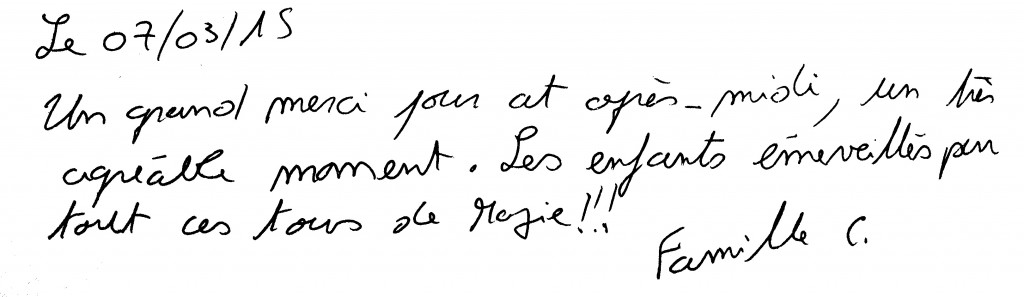 Le 07/03/15
Un grand merci pour cet après-midi, un très
agréable moment. Les enfants émerveillés par
tout ces tours de Magie!!!
Famille C.